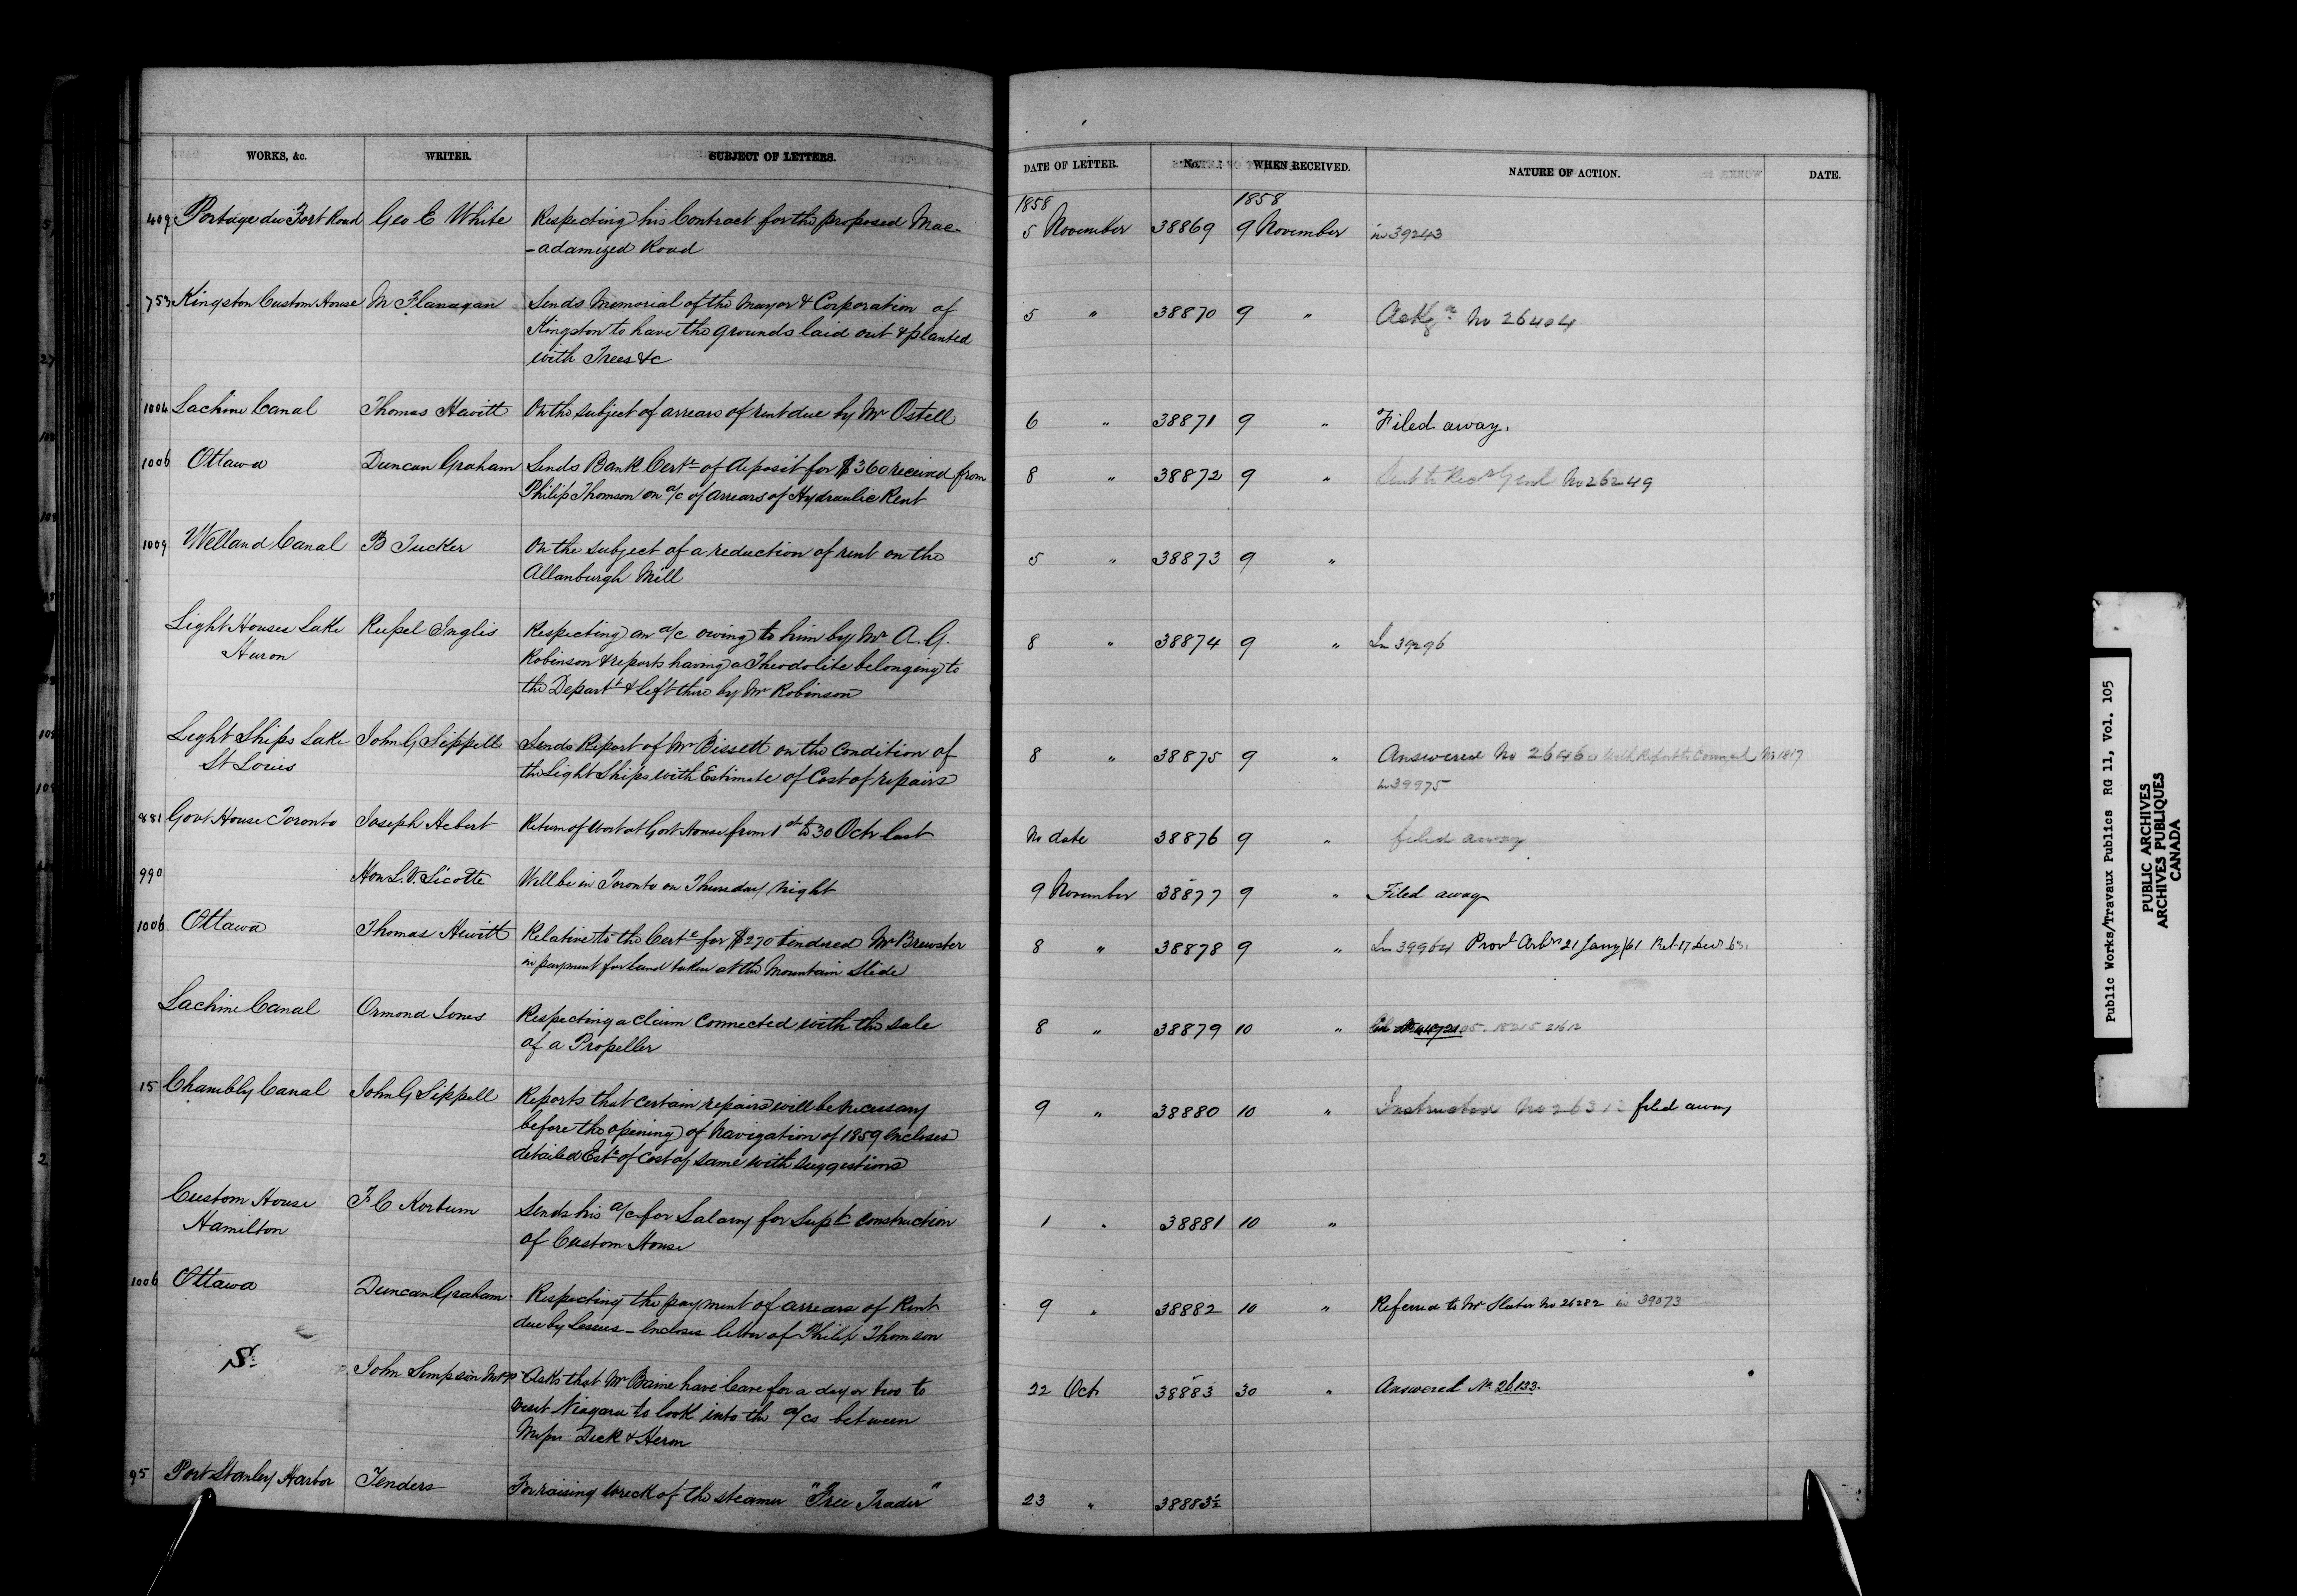 WORKS, &c. WRITER. SUBJECT OF LETTERS. DATE OF LETTER. No. WHEN RECEIVED. NATURE OF ACTION. DATE.
1858 1858
409 Portage du Fort Road Geo E White Respecting his Contract for the proposed Mac- 5 November 38869 9 November in 39243
-adamized Road
753 Kingston Custom House M Flanagan Sends Memorial of the Mayor & Corporation of 5 " 38870 9 " Ackg No 26404
Kingston to have the grounds laid out & planted
with Trees &c
1004 Lachine Canal Thomas Hewitt On the subject of arrears of rent due by Mr Ostell 6 " 38871 9 " Filed away.
1006 Ottawa Duncan Graham Sends Bank Certe of deposit for $360 received from 8 " 38872 9 " Sent to Recr Genl No 26249
Philip Thomson on a/c of arrears of Hydraulic Rent
1009 Welland Canal B Tucker On the subject of a reduction of rent on the 5 " 38873 9 "
Allanburgh Mill
Light Houses Lake Inglis Respecting an a/c owing to him by Mr A. G. 8 " 38874 9 " In 39296
Huron Robinson & reports having a Theodolite belonging to
the Depart & left there by Mr Robinson
Light Ships Lake John G Sippell Sends Report of Mr Bissett on the Condition of 8 " 38875 9 " Answered No with Report to Council No 1817
St Louis the Light Ships with Estimate of Cost of repairs in 39975
881 Govt House Toronto Joseph Hebert Return of work at Govt House from 1st to 30 Octr last No date 38876 9 " filed away
990 Hon L. V. Sicotte Will be in Toronto on Thursday night 9 November 38877 9 " Filed away
1006 Ottawa Thomas Hewitt Relative to the Certe for $270 tendered Mr Brewster 8 " 38878 9 " In 39964 Provl Arbrs 21 Jany/61
in payment for land taken at the Mountain Slide
Lachine Canal Ormond Jones Respecting a claim connected with the sale 8 " 38879 10 "
of a Propeller
15 Chambly Canal John G Sippell Reports that certain repairs will be necessary 9 " 38880 10 " Instructed No filed away
before the opening of Navigation of 1859 encloses
detailed Este of Cost of same with suggestions
Custom House F C Kortum Sends his a/c for Salary for Supt construction 1 " 38881 10 "
Hamilton of Custom House
1006 Ottawa Duncan Graham Respecting the payment of arrears of Rent 9 " 38882 10 " Referred to Mr Slater No 26282 in 39073
due by Lessees - encloses letter of Philip Thomson
S. John Simpson MPP Asks that Mr Baine have leave for a day or two to 22 Oct 38883 30 " Answered No 26133.
visit Niagara to look into the a/cs between
Messrs Dick & Heron
95 Port Stanley Harbor Tenders For raising wreck of the steamer "Free Trader" 23 " 38883½
Public Works/Travaux Publics RG 11, Vol. 105
PUBLIC ARCHIVES
ARCHIVES PUBLIQUES
CANADA